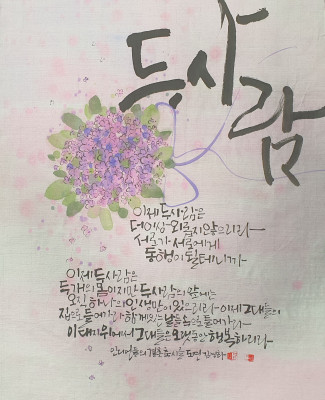 두 사람
이제 두 사람은
더 이상 외롭지 않으리라
서로가 서로에게
동행이 될 테니까
이제 두 사람은
두 개의 몸이지만 두 사람의 앞에는
오직 하나의 인생만이 있으리라 이제 그대들의
집으로 들어가라 함께 있는 날들 속으로 들어가라
이 대지 위에서 그대들은 오랫동안 행복하리라
인디언들의 결혼 축시를 도연